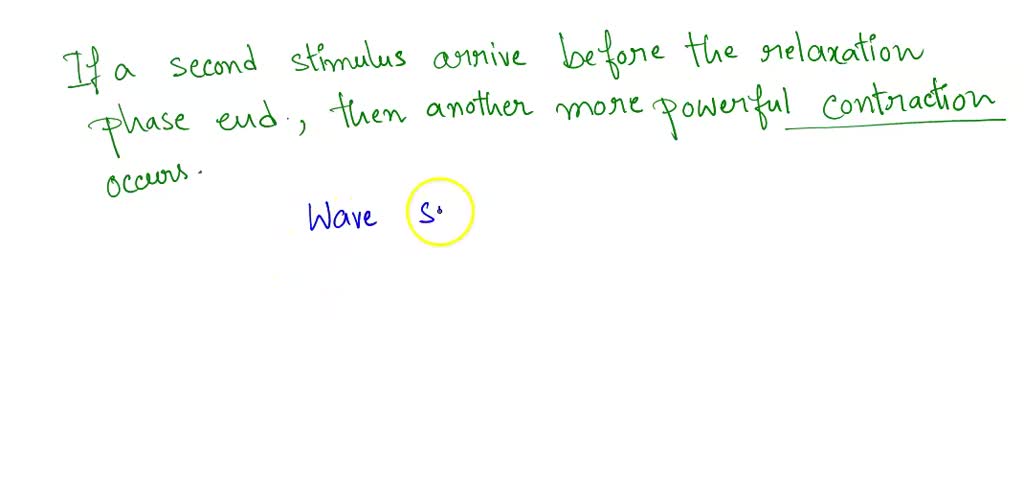 If a second stimulus arrive before the relaxation
phase end., then another more powerful contraction
occurs.
Wave s